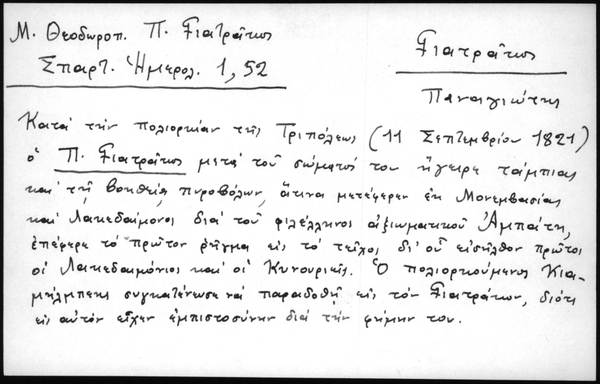 Μ. Θεοδωροπ. Π. Γιατράκος
Σπαρτ. Ἡμερολ. 1, 52
Γιατράκος
Παναγιώτης
Κατά τήν πολιορκίαν τῆς Τριπόλεως (11 Σεπτεμβρίου 1821)
ὁ Π. Γιατράκος μετά τοῦ σώματός του ἤγειρε τάμπιας
καί τῇ βοηθείᾳ πυροβόλων, ἅτινα μετέφερεν ἐκ Μονεμβασίας
καί Λακεδαίμονος διά τοῦ φιλέλληνος ἀξιωματικοῦ Ἀμπάτη,
ἐπέφερε τό πρῶτον ρῆγμα εἰς τό τεῖχος, δι' οὗ εἰσῆλθον πρῶτοι
οἱ Λακεδαιμόνιοι καί οἱ Κυνουριεῖς. Ὁ πολιορκούμενος Κια-
μήλμπεης συγκατένευσε νά παραδοθῇ εἰς τόν Γιατράκον, διότι
εἰς αὐτόν εἶχεν ἐμπιστοσύνην διά τήν φήμην του.